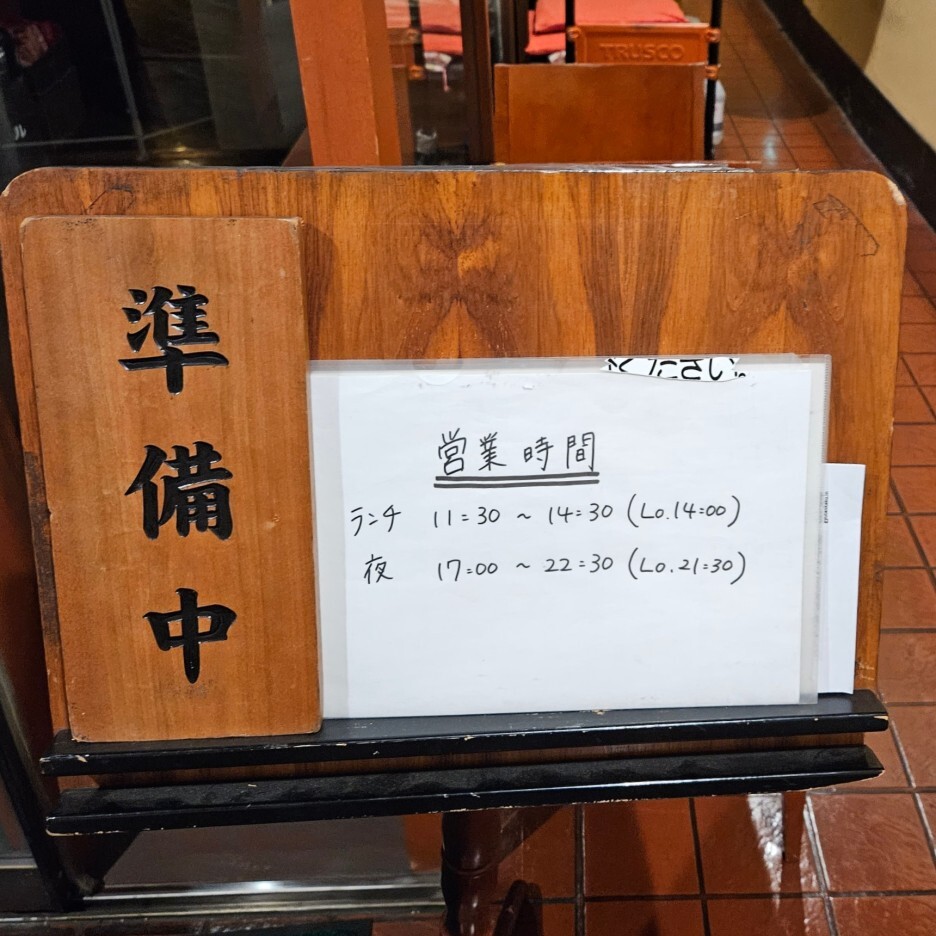 TRUSCO
準備中
営業時間
ランチ 11:30 ~ 14:30 (Lo.14:00)
夜 17:00 ~ 22:30 (Lo.21:30)